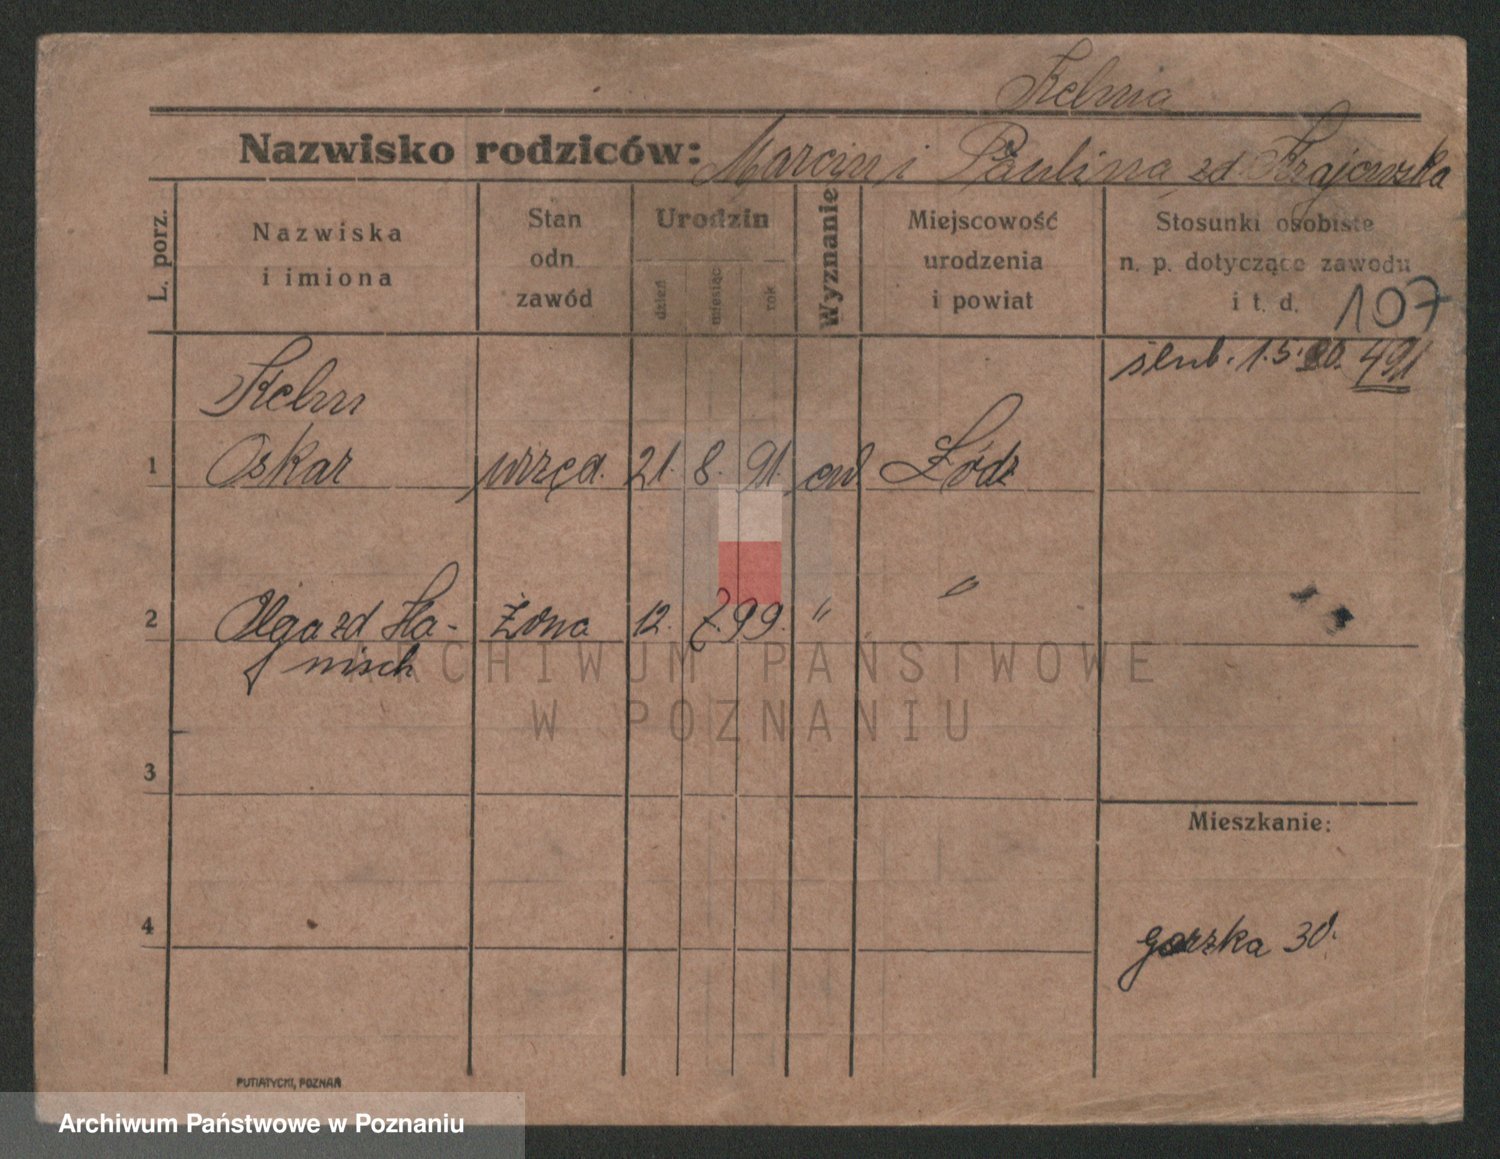 Kelma
Nazwisko rodziców: Marcin i Paulina zd. Krajewska
L. porz.
Nazwiska
i imiona
Stan
odn
zawód
Urodzin
dzień
miesiąc
rok
Wyznanie
Miejscowość
urodzenia
i powiat
Stosunki osobiste
n. p. dotyczące zawodu
i t. d.
107
ślub. 1.5.20. 491
Kelm
1 Oskar urzęd. 21. 8. 91. ew Łódź
2 Olga zd Ha- Żona 12. 7. 99. " "
nisch
ARCHIWUM PAŃSTWOWE
W POZNANIU
3
Mieszkanie:
4
gorzka 30.
PUTIATYCKI, POZNAŃ
Archiwum Państwowe w Poznaniu